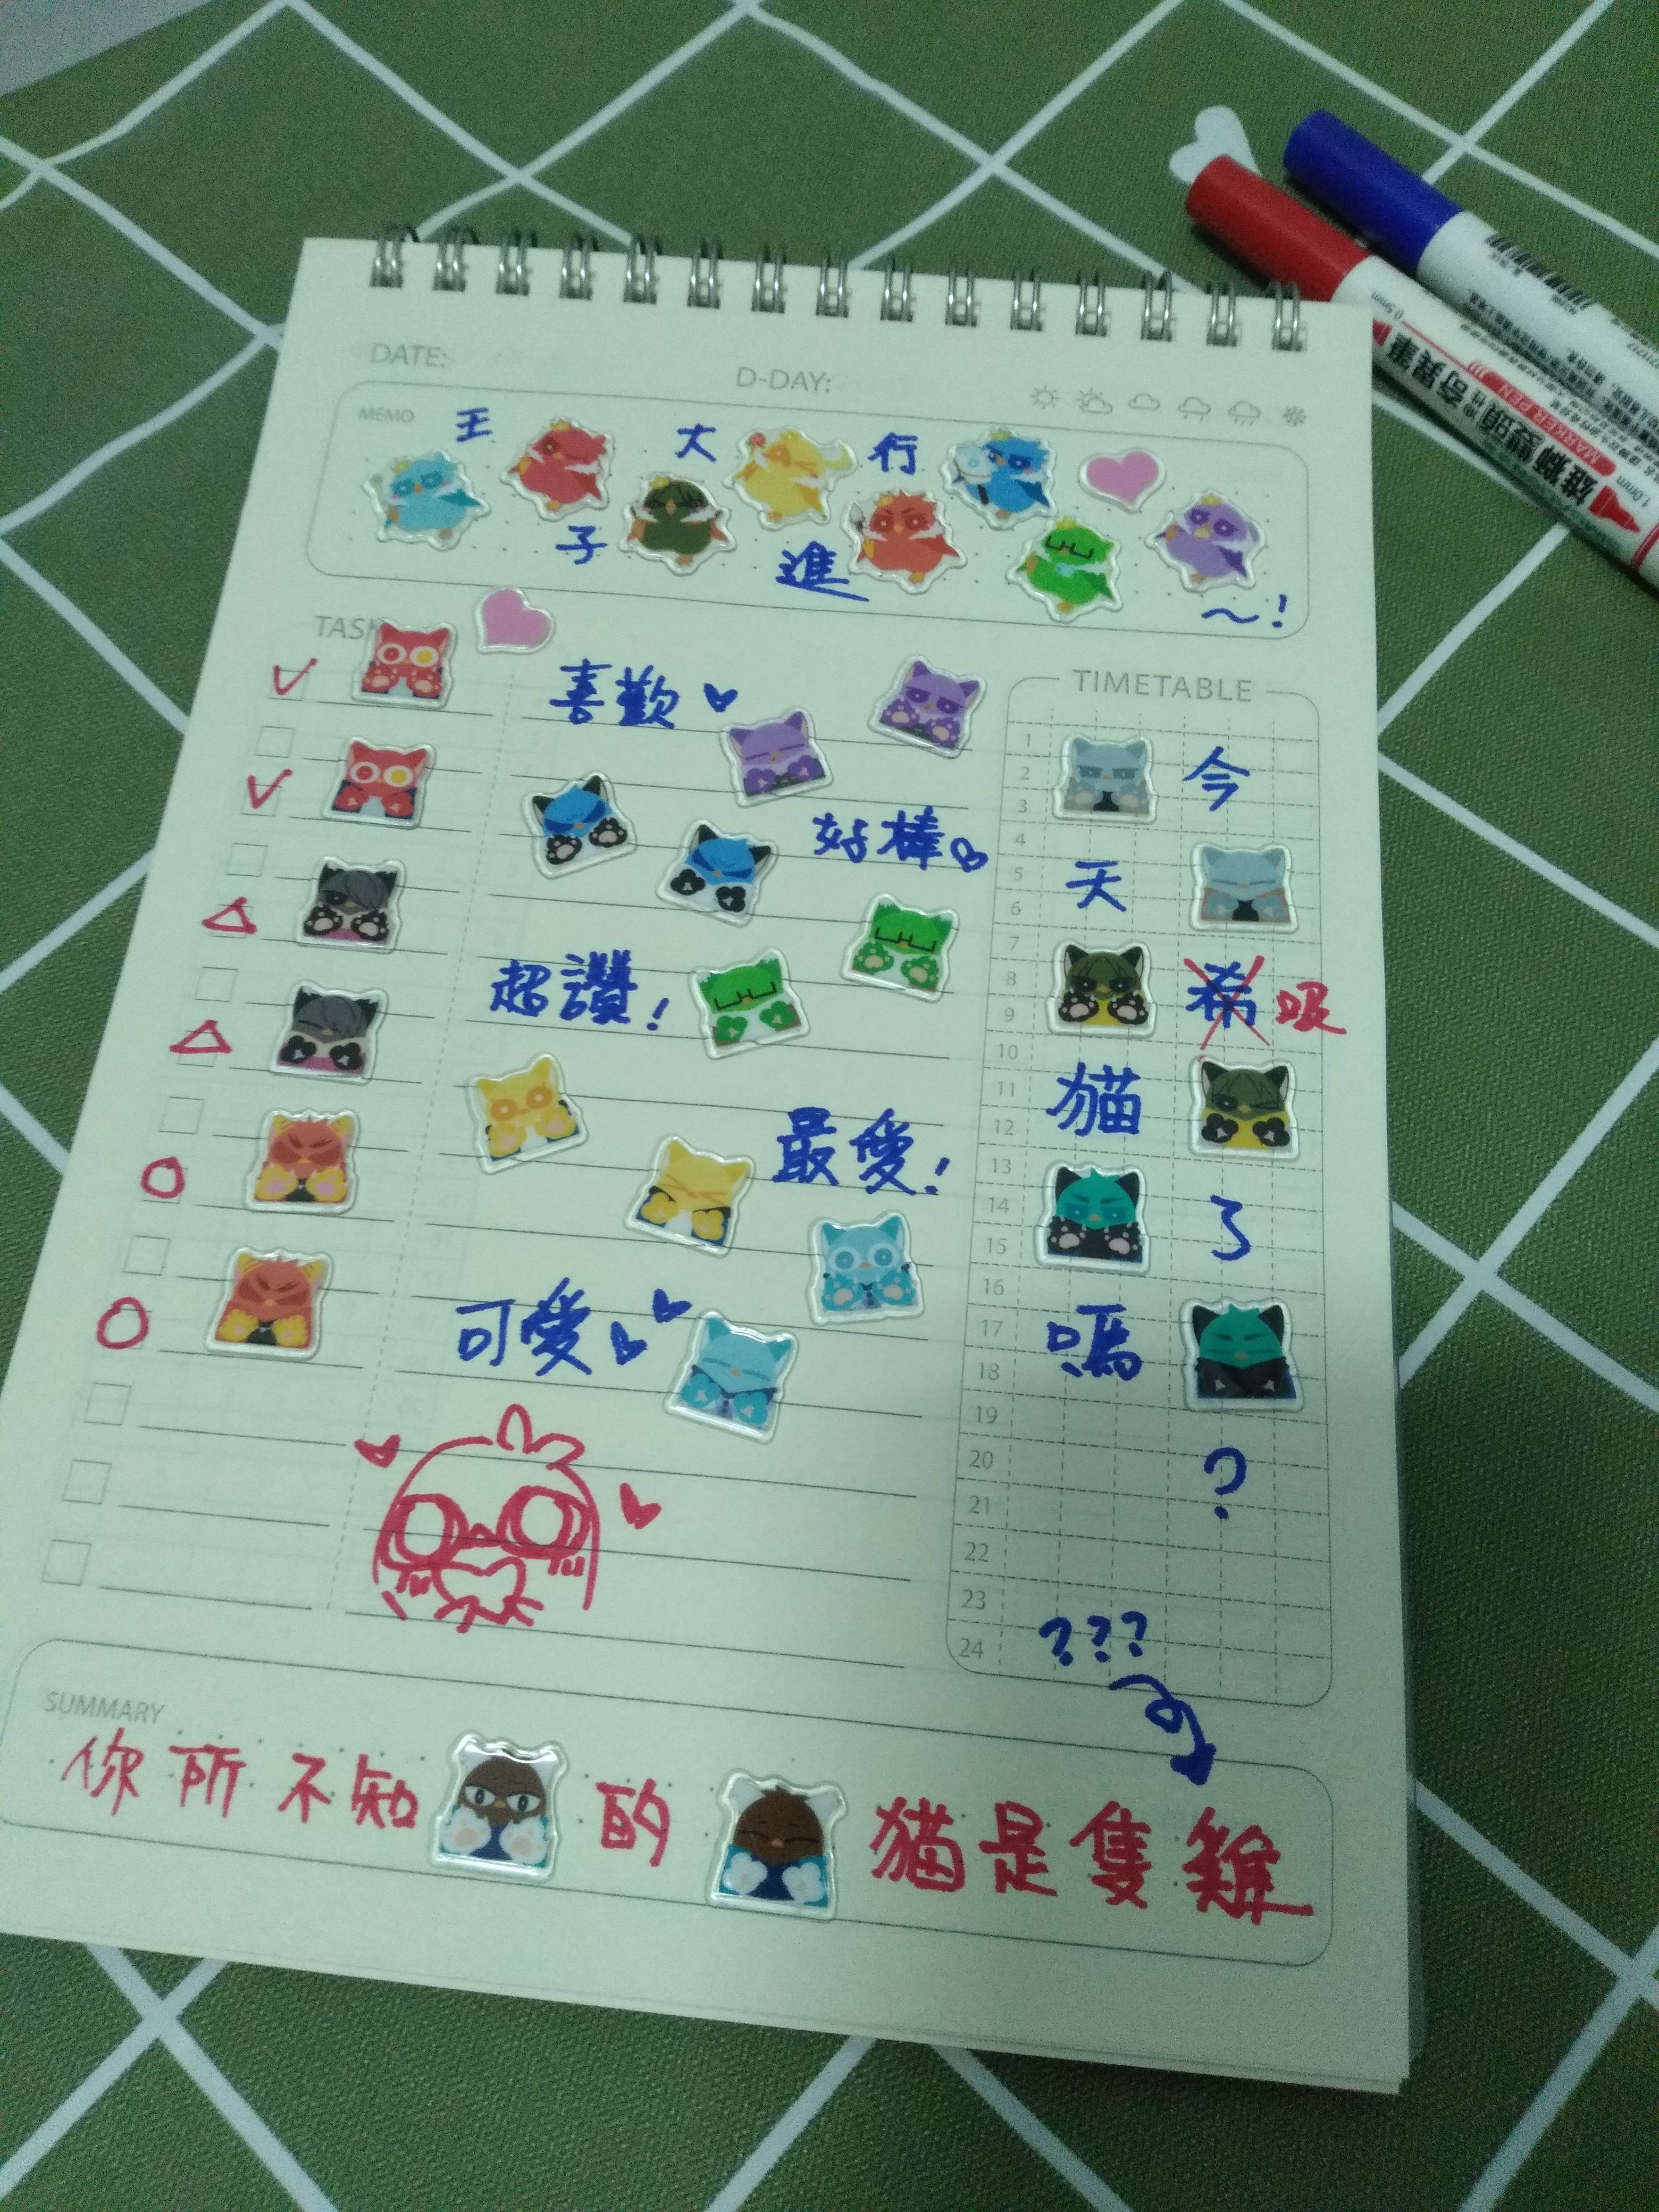 DATE:
D-DAY:
MEMO
王子大進行～!
TASK
喜歡
好棒
超讚!
最愛!
可愛
TIMETABLE
1
2
3
4
5
6
7
8
9
10
11
12
13
14
15
16
17
18
19
20
21
22
23
24
今
天
希 吸
貓
了
嗎
?
???
SUMMARY
你所不知的貓是隻雞
雄獅雙頭奇異筆
MARKER PEN
0.5mm
1.0mm